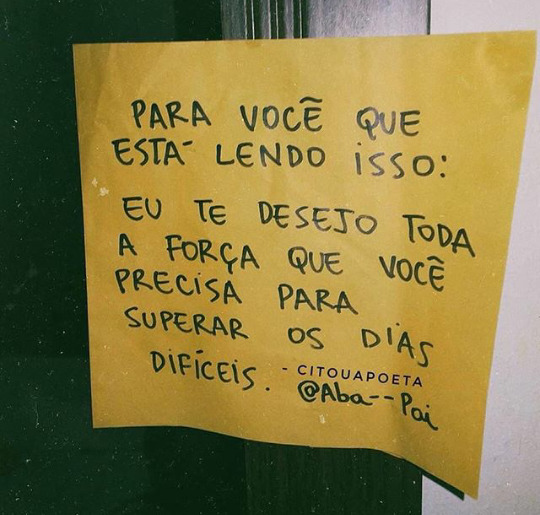 PARA VOCÊ QUE
ESTÁ LENDO ISSO:
EU TE DESEJO TODA
A FORÇA QUE VOCÊ
PRECISA PARA
SUPERAR OS DIAS
DIFÍCEIS.
- CITOUAPOETA
@Aba--Pai